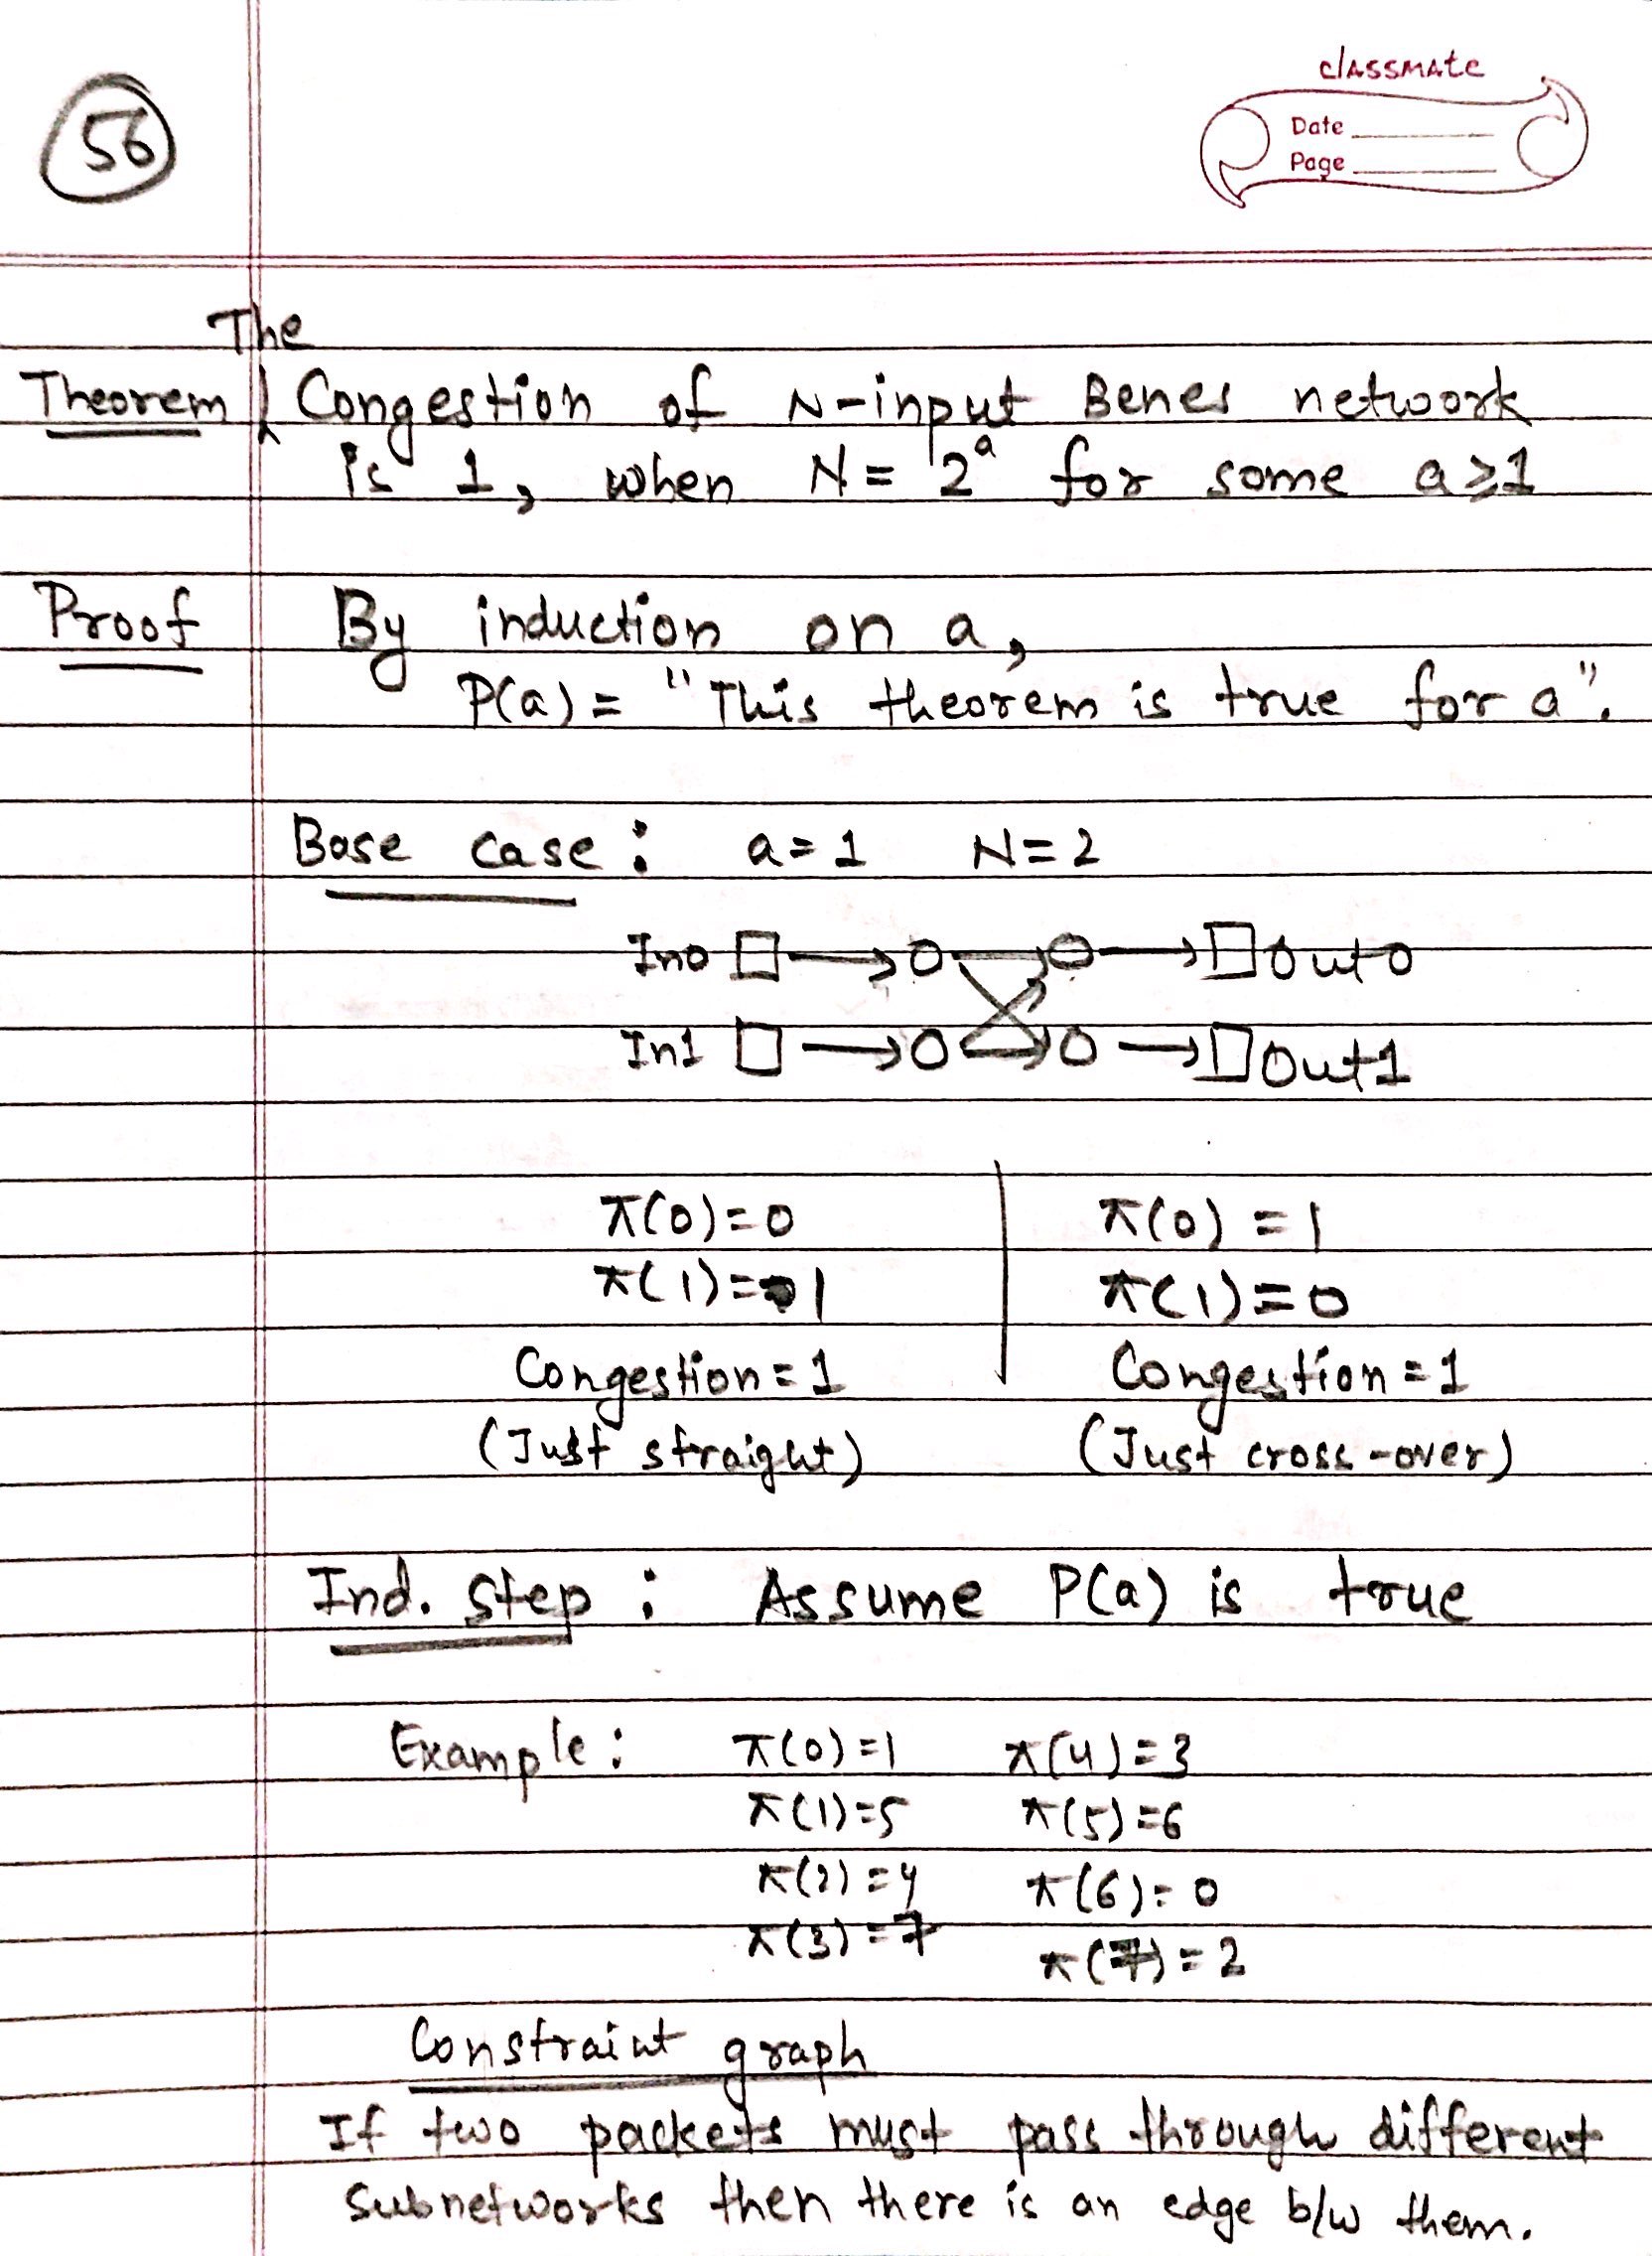 56
classmate
Date
Page
The
Theorem Congestion of N-input Benes network
is 1, when N = 2^a for some a ≥ 1
Proof By induction on a,
P(a) = "This theorem is true for a".
Base case : a = 1 N = 2
In0 Out0
In1 Out1
π(0) = 0 π(0) = 1
π(1) = 1 π(1) = 0
Congestion = 1 Congestion = 1
(Just straight) (Just cross-over)
Ind. step : Assume P(a) is true
Example : π(0) = 1 π(4) = 3
π(1) = 5 π(5) = 6
π(2) = 4 π(6) = 0
π(3) = 7 π(7) = 2
Constraint graph
If two packets must pass through different
subnetworks then there is an edge b/w them.